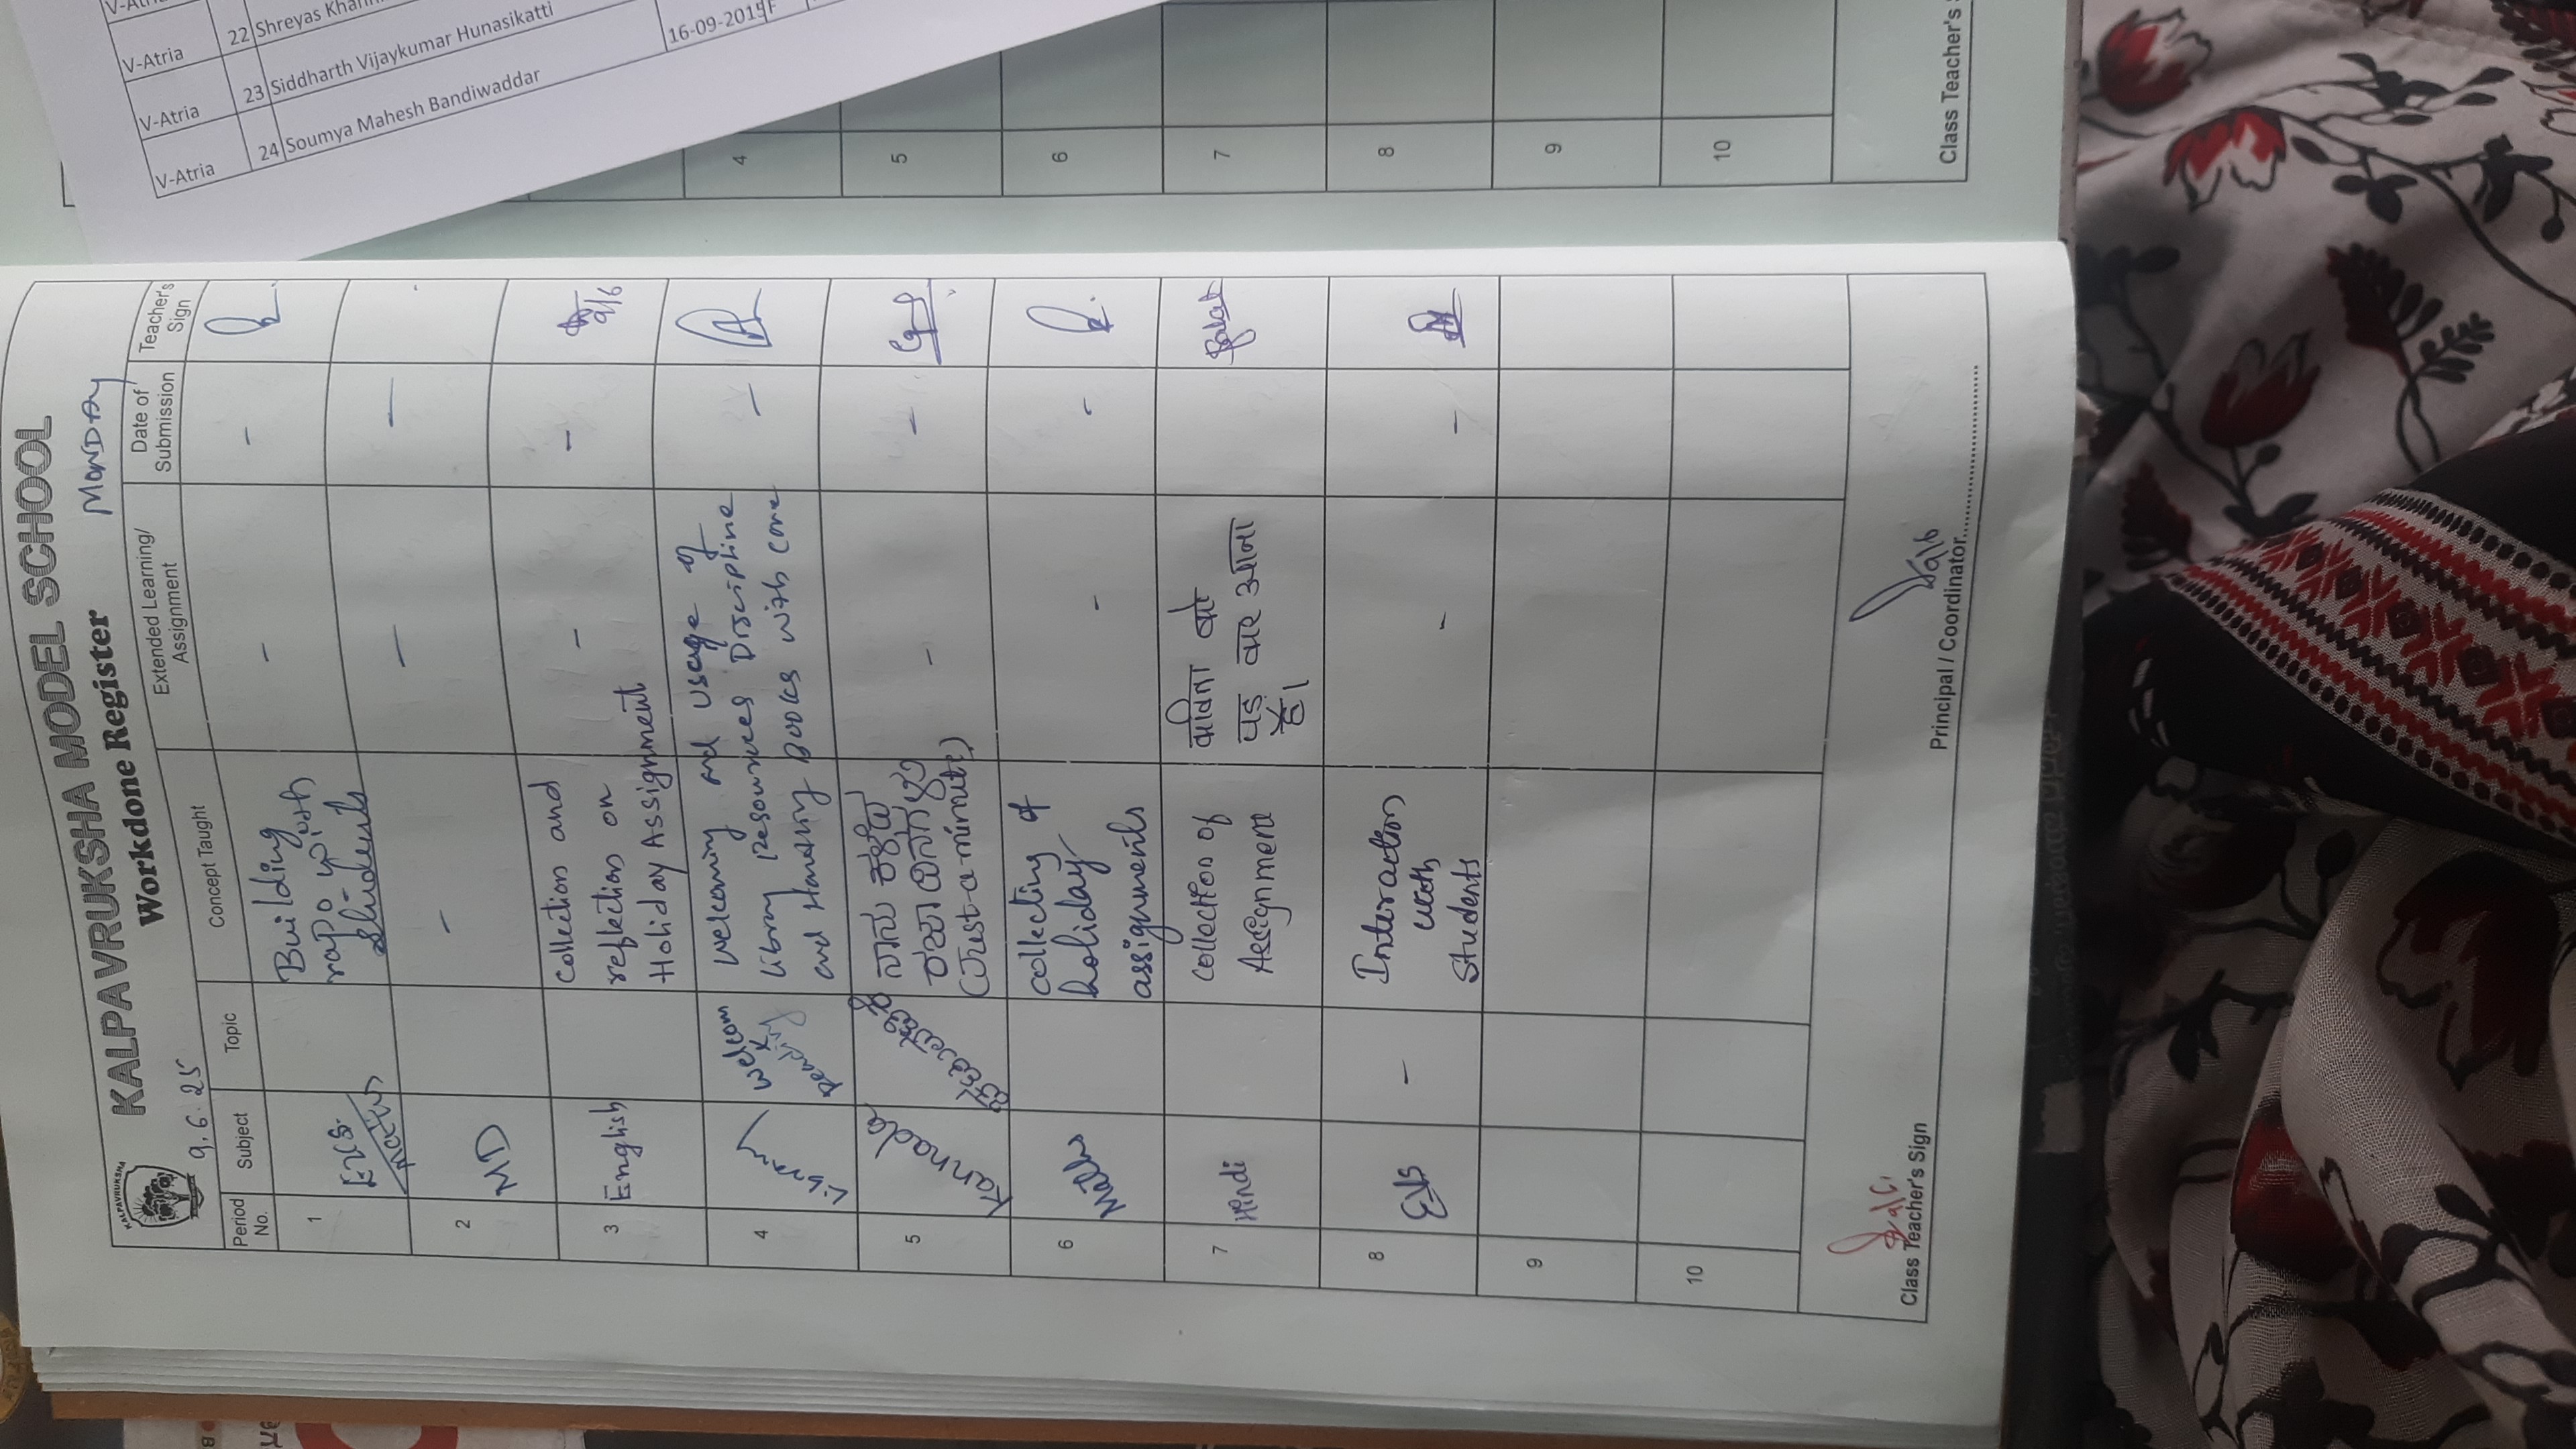 V-Atria 22 Shreyas
V-Atria 23 Siddharth Vijaykumar Hunasikatti
V-Atria 24 Soumya Mahesh Bandiwaddar 16-09-2015 F
4
5
6
7
8
9
10
Class Teacher's
KALPAVRUKSHA
KALPAVRUKSHA MODEL SCHOOL
Workdone Register
9.6.25 MONDAY
Period No. Subject Topic Concept Taught Extended Learning/ Assignment Date of Submission Teacher's Sign
1 Building
rapo with
Students - -
2 MD - - -
3 English Collection and
reflection on
Holiday Assignment - - 9/6
4 Library Welcom
Reading
Welcoming and usage of
Library Resources Discipline
and Handling Books with care -
5 Kannada ನಾನು ಕಳೆದ
ರಜಾ ದಿನಗಳು
(Just-a-minute) - -
6 Maths collecting of
holiday
assignments - -
7 Hindi Collection of
Assignment
कविता को
पढ़ कर आना
है।
8 EVS - Interaction
with
Students - -
9
10
Class Teacher's Sign
Principal / Coordinator
9/6